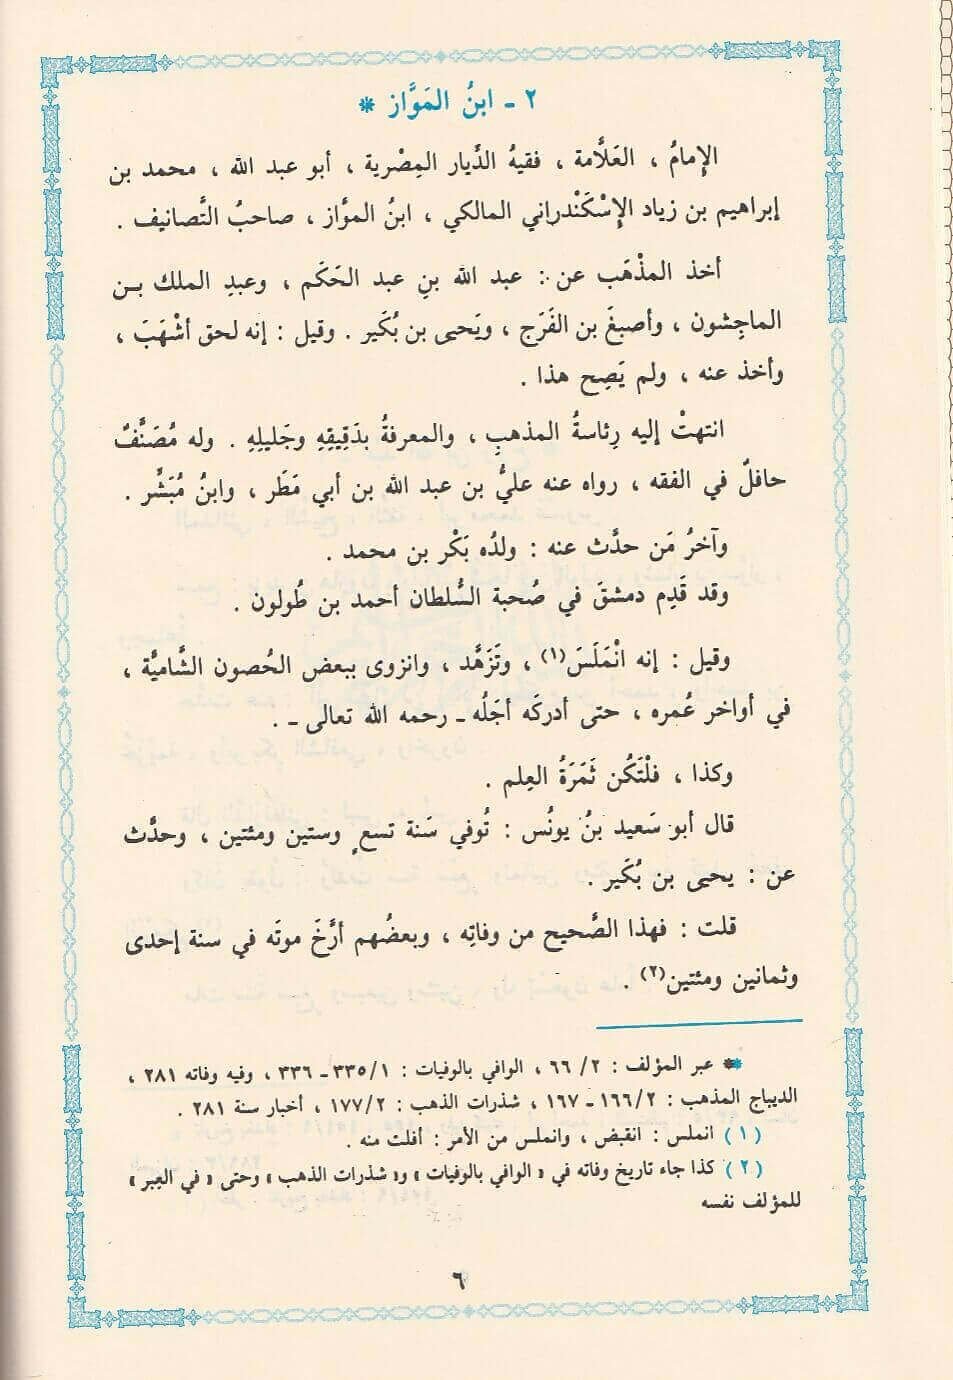 ٢ - ابنُ المَوَّاز *
الإمامُ ، العَلاَّمة ، فقيهُ الدِّيار المِصْرية ، أبو عبد الله ، محمد بن
إبراهيم بن زياد الإسْكَندراني المالكي ، ابنُ الموَّاز ، صاحبُ التَّصانيف .
أخذ المذْهَب عن : عبد الله بنِ عبد الحَكَم ، وعبدِ الملك بـن
الماجِشون ، وأصبغَ بن الفَرَج ، ويَحيى بن بُكَير . وقيل : إنه لحق أشْهَبَ ،
وأخذ عنه ، ولم يَصِح هذا .
انتهتْ إليه رِئاسةُ المذهبِ ، والمعرفةُ بدَقِيقِهِ وجَليلِهِ . وله مُصَنَّفٌ
حافلٌ في الفقه ، رواه عنه عليُّ بن عبد الله بن أبي مَطَر ، وابنُ مُبَشِّر .
وآخرُ مَن حدَّث عنه : ولدُه بَكْر بن محمد .
وقد قَدِم دمشقَ في صُحبة السُّلطان أحمد بن طُولون .
وقيل : إنه انْمَلَسَ(١) ، وتَزَهَّد ، وانزوى ببعض الحُصون الشَّاميَّة ،
في أواخر عُمره ، حتى أدركَه أجَلُه ـ رحمه الله تعالى ـ .
وكذا ، فلْتَكُن ثَمَرَةُ العِلم .
قال أبو سَعيد بنُ يونُس : تُوفي سَنة تسعٍ وستين ومئتين ، وحدَّث
عن : يحيى بن بُكَير .
قلت : فهذا الصَّحيح من وفاتِه ، وبعضُهم أرَّخَ موتَه في سنة إحدى
وثمانين ومئتين(٢) .
* عبر المؤلف : ٢/ ٦٦ ، الوافي بالوفيات : ١/ ٣٣٥ ـ ٣٣٦ ، وفيه وفاته ٢٨١ ،
الديباج المذهب : ٢/ ١٦٦ ـ ١٦٧ ، شذرات الذهب : ٢/ ١٧٧ ، أخبار سنة ٢٨١ .
( ١ ) انملس : انقبض ، وانملس من الأمر : أفلت منه .
( ٢ ) كذا جاء تاريخ وفاته في « الوافي بالوفيات » و« شذرات الذهب » وحتى « في العِبر »
للمؤلف نفسه
٦